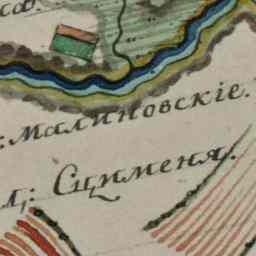 :малиновскіе.
л,: Сцименя,.